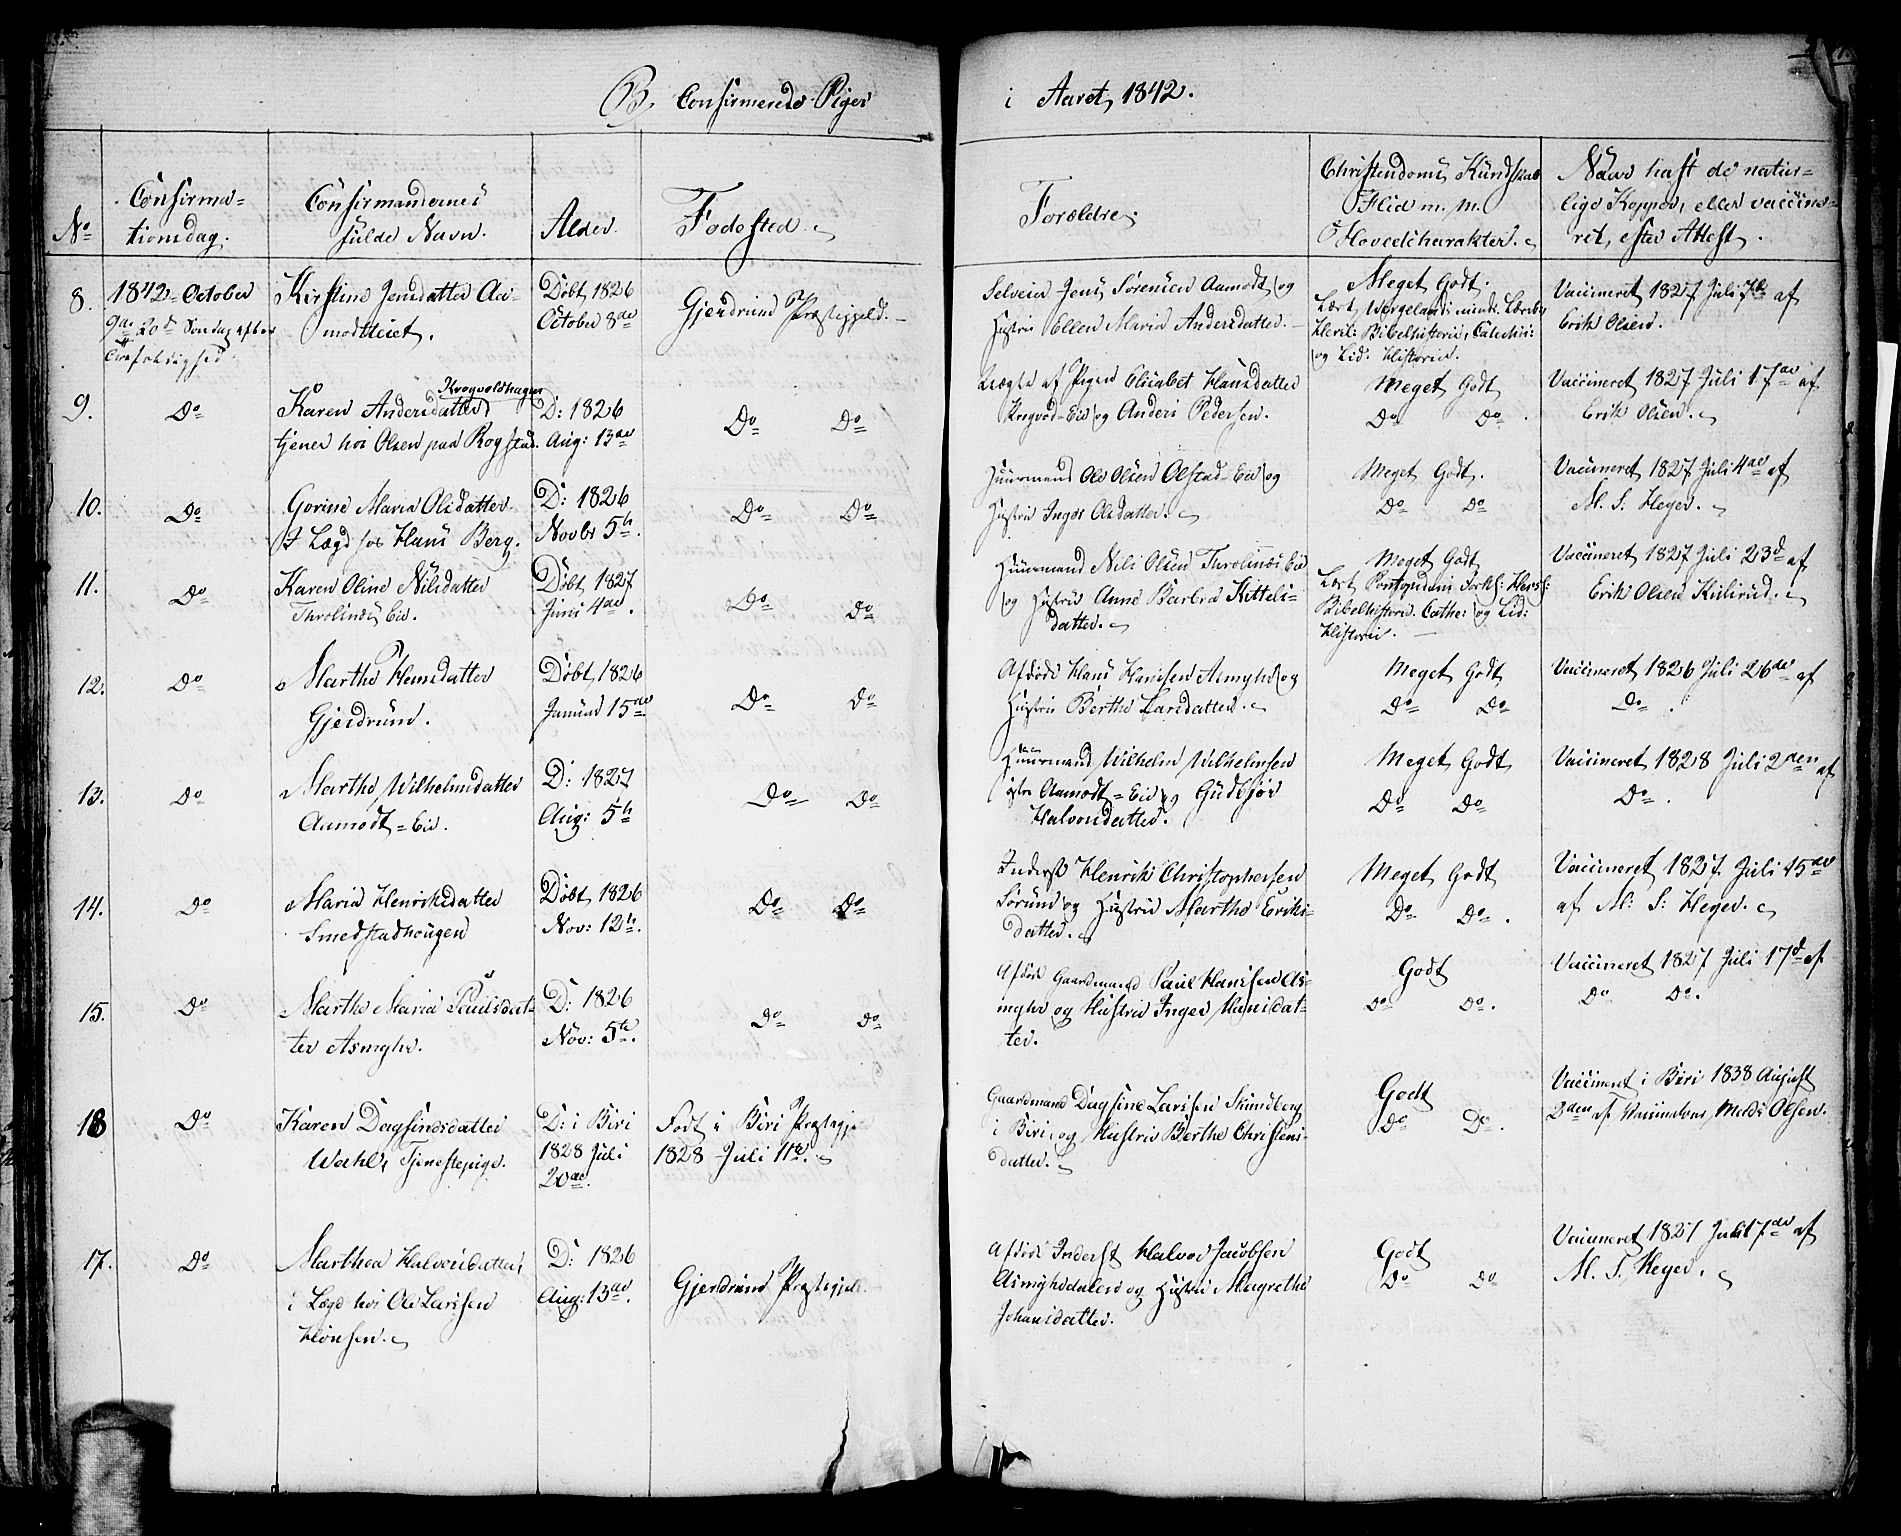 B, Confirmerede Piger i Aaret, 1842.
No
Confirma-
tionsdag.
Confirmandernes
fulde Navn.
Alder.
Fødested.
Forældre.
Christendoms Kundskab
Flid m. m.
Hovedcharakter.
Naar haft de natur-
lige Kopper, eller vaccine-
ret, efter Attest.
8.
1842 October
9de 20de Søndag efter
Trefoldighed
Kirstine Jensdatter Aa-
modteiet.
Døbt 1826
October 8de
Gjerdrum Præstegjeld.
Selveier Jens Sørensen Aamodt og
Hustru Ellen Maria Andersdatter.
Meget Godt.
Lært Wergelands mind. Lærebog
Hersl: Bibelhistorie, Catechis:
og Lid: Historien.
Vaccineret 1827 Juli 7de af
Erik Olsen.
9.
Do
Krogvoldhagen
Karen Andersdatter
tjener hos Olsen paa Rogstad.
D: 1826
Aug: 13de
Do Do
Uægte af Pigen Elisabet Hansdatter
Krogvod-Eie og Anders Pedersen.
Meget Godt
Do Do.
Vaccineret 1827 Juli 17de af
Erik Olsen.
10.
Do
Gorine Maria Olsdatter
I Lægd hos Hans Berg.
D: 1826
Novbr 5te.
Do Do
Huusmand Ole Olsen Olstad-Eie og
Hustru Inger Olsdatter.
Meget Godt.
Do Do
Vaccineret 1827 Juli 4de af
M. S. Heyer.
11.
Do
Karen Oline Nilsdatter
Throlinds Eie.
Døbt 1827
Juni 4de.
Do Do
Huusmand Nils Olsen Throlinds Eie
og Hustrue Anne Barbra Kittels-
datter.
Meget Godt
Lært Pontopidans Forkl: Hersl:
Bibelhistorie. Cathe: og Lid:
Historie.
Vaccineret 1827 Juli 23d af
Erik Olsen Kulsrud.
12.
Do
Marthe Hansdatter
Gjerdrum.
Døbt 1826
Januar 15de
Do Do
Afdøde Hans Hansen Asmyhr og
Hustru Berthe Larsdatter.
Meget Godt
Do Do
Vaccineret 1826 Juli 26de af
Do.
13.
Do
Marthe Wilhelmsdatter
Aamodt-Eie.
D: 1827
Aug: 5te
Do Do
Huusmand Wilhelm Wilhelmsen
Aamodt-Eie og Gudbjør
Halvorsdatter.
Meget Godt
Do Do
Vaccineret 1828 Juli 2den af
Do.
14.
Do
Maria Henriksdatter
Smedstadhougen
Døbt 1826
Nov: 12te.
Do Do
Inderst Henrik Christophersen
Sørum og Hustru Marthe Eriks-
datter.
Meget Godt
Do Do.
Vaccineret 1827 Juli 15de
af M: S: Heyer.
15.
Do
Marthe Maria Paulsdat-
ter Asmyhr.
D: 1826
Nov: 5te.
Do Do
Afdøde Gaardmand Paul Hansen As-
myhr og Hustru Inger Hansdat-
ter.
Godt
Do Do.
Vaccineret 1827 Juli 17d af
Do Do.
16
Do
Karen Dagfindsdatter
Wahl, Tjenestepige.
D: i Biri
1828 Juli
20de.
Født i Biri Præstegje
1828 Juli 11te.
Gaardmand Dagfind Larsen Skundberg
i Biri, og Hustru Berthe Christens-
datter.
Godt
Do Do.
Vaccineret i Biri 1838 August
2den af Vaccinateur, Mads Olsen.
17.
Do
Marthea Halvorsdatter,
i Lægd hos Ole Larsen
Hønsen.
D: 1826
Aug: 13de.
Gjerdrum Præstegjeld.
Afdøde Inderst Halvor Jacobsen
Asmyhrdalen og Hustru Magrethe
Johansdatter.
Godt
Do Do
Vaccineret 1827 Juli 17de af
M. S. Heyer.